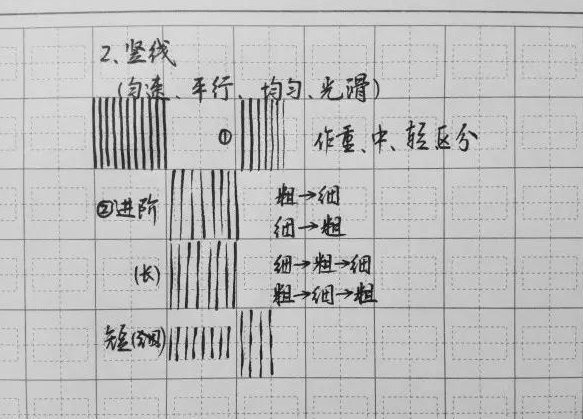 2、竖线
(匀速、平行、均匀、光滑)
① 作重、中、轻区分
②进阶 粗→细
细→粗
(长) 细→粗→细
粗→细→粗
短(细)